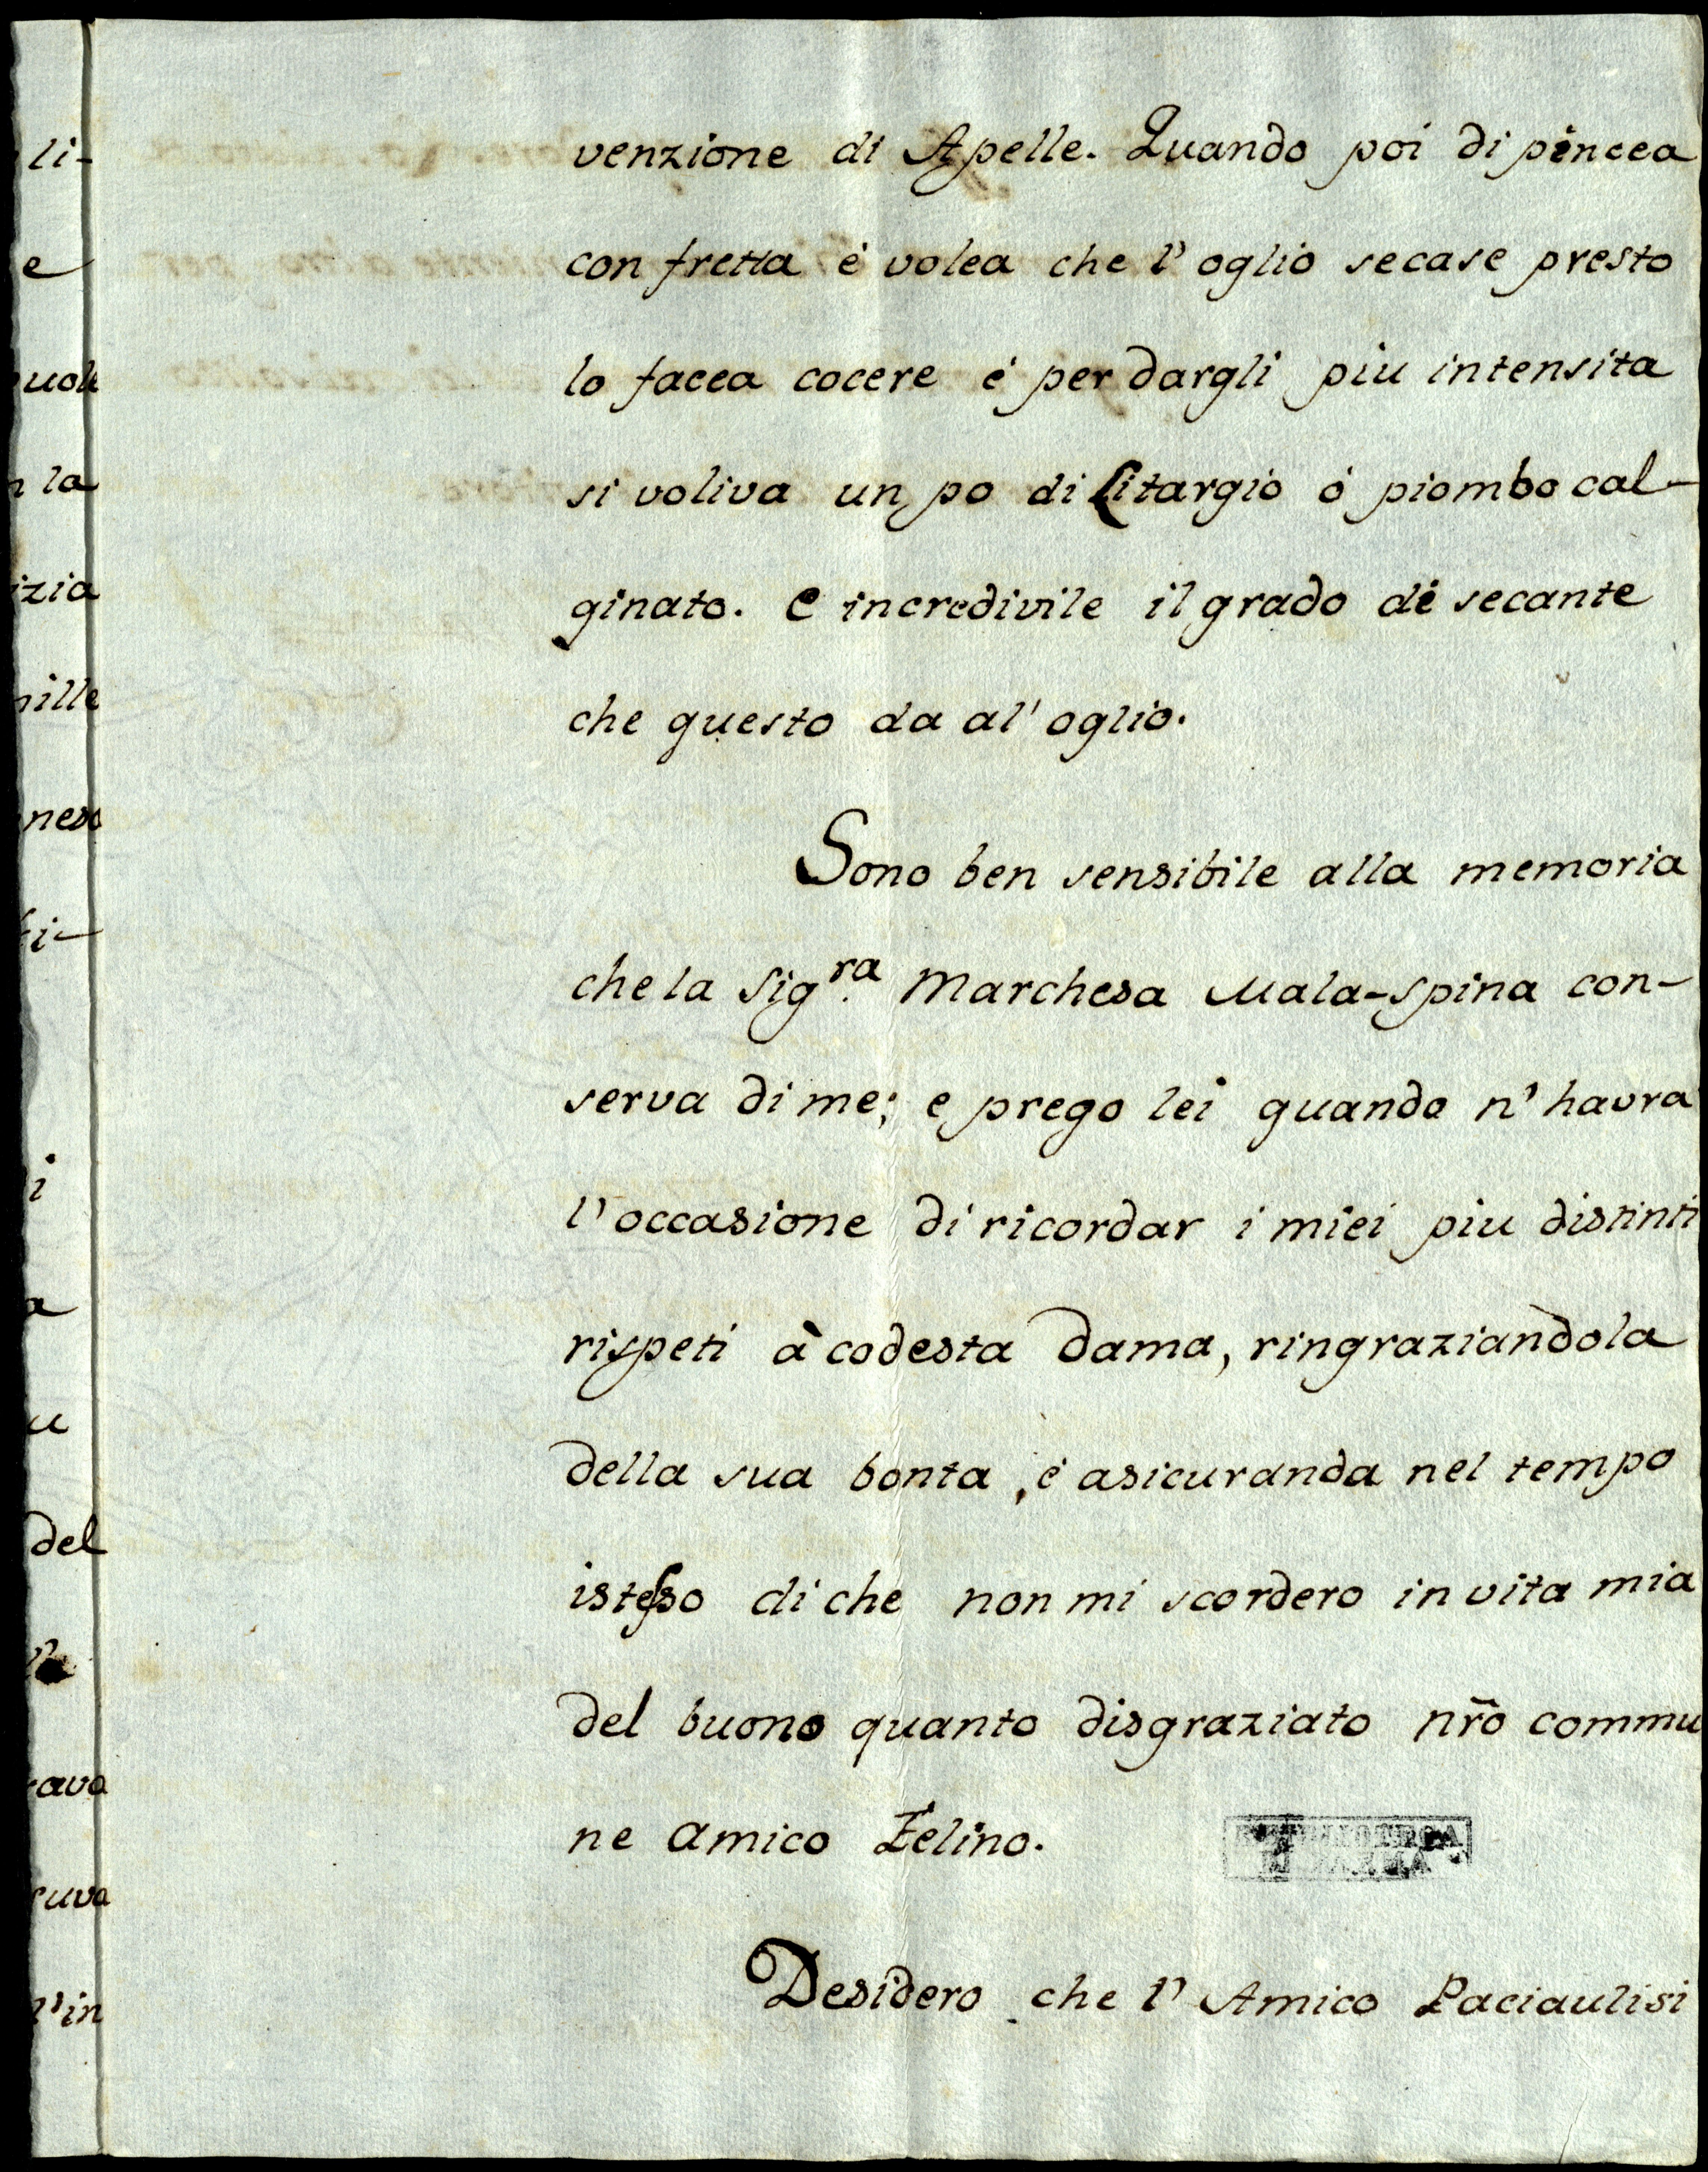 venzione di Apelle. Quando poi di pincea
con fretta è volea che l'oglio secase presto
lo facea cocere è per dargli piu intensita
si voliva un po di Litargio ò piombo cal-
ginato. e incredivile il grado di secante
che questo da al'oglio.
Sono ben sensibile alla memoria
che la Sig.ra Marchesa Mala-spina con-
serva di me; e prego lei quando n'havra
l'occasione di ricordar i miei piu distinti
rispeti à codesta Dama, ringraziandola
della sua bonta, è asicuranda nel tempo
istesso di che non mi scordero in vita mia
del buono quanto disgraziato nr̃o commu
ne amico Zelino.
Desidero che l'Amico Paciaulisi
li-
e
la
zia
del
l'in